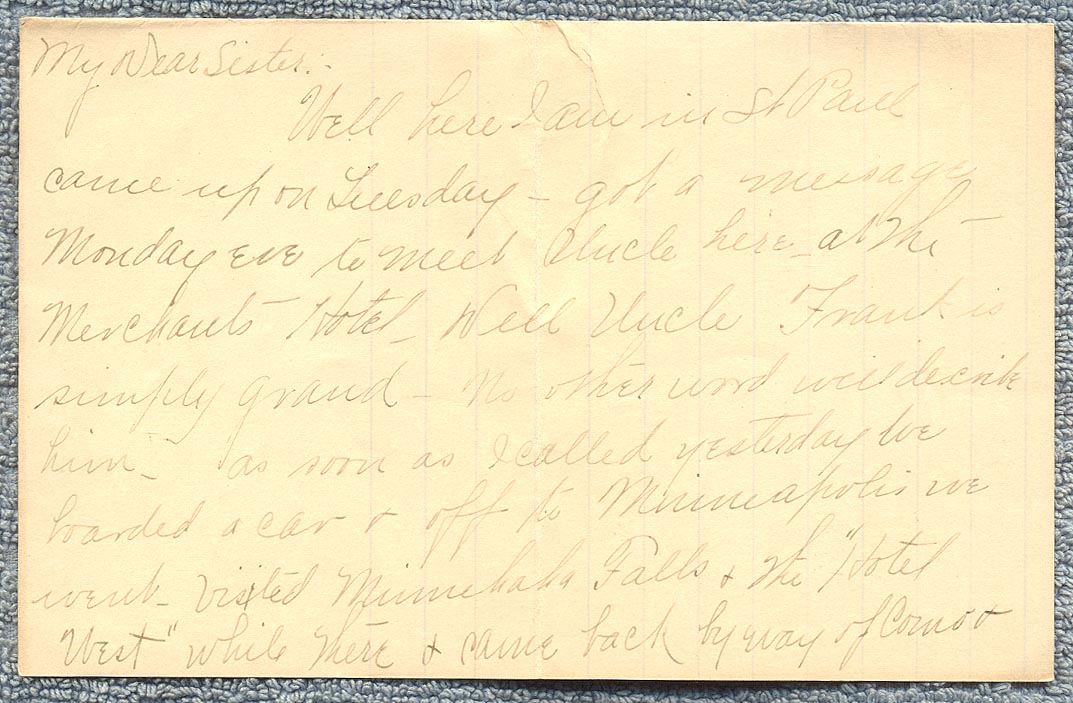 My Dear Sister:-
Well here I am in St Paul
came up on Tuesday - got a message
Monday eve to meet Uncle here at the
Merchants Hotel - Well Uncle Frank is
simply grand - No other word will describe
him - as soon as I called yesterday we
boarded a car & off to Minneapolis we
went - visited Minnehaha Falls & the "Hotel
West" while there & came back by way of Como &